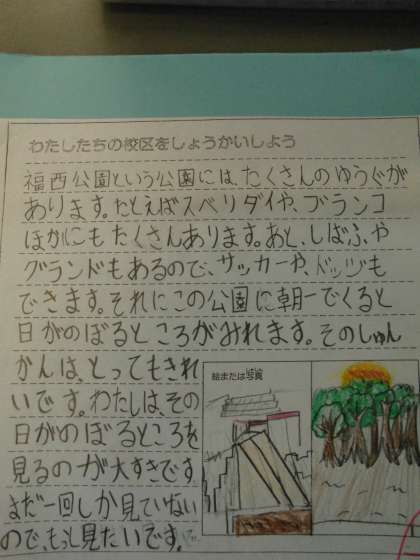 わたしたちの校区をしょうかいしよう
福西公園という公園には、たくさんのゆうぐが
あります。たとえばスベリダイや、ブランコ
ほかにもたくさんあります。あと、しばふや
グランドもあるので、サッカーや、ドッヅも
できます。それにこの公園に朝一でくると
日がのぼるところがみれます。そのしゅん
かんは、とってもきれ
いです。わたしは、その
日がのぼるところを
見るのが大すきです
まだ一回しか見ていない
ので、もっと見たいです。
絵または写真